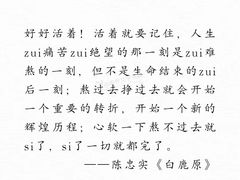 好好活着！活着就要记住，人生
zui痛苦zui绝望的那一刻是zui难
熬的一刻，但不是生命结束的zui
后一刻；熬过去挣过去就会开始
一个重要的转折，开始一个新的
辉煌历程；心软一下熬不过去就
si了，si了一切就都完了。
——陈忠实《白鹿原》